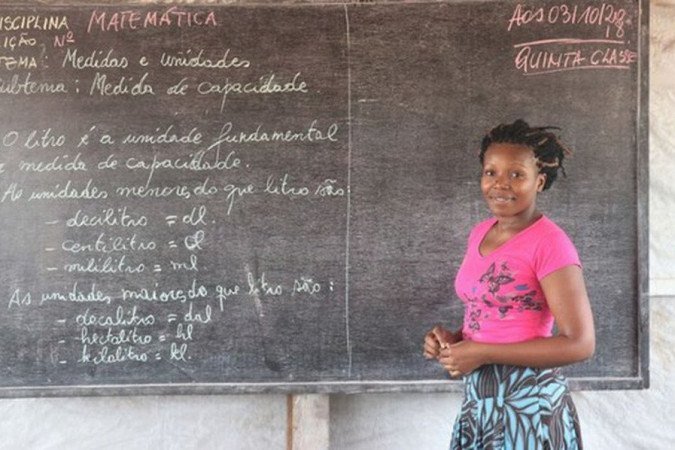 DISCIPLINA MATEMÁTICA
LIÇÃO Nº
TEMA: Medidas e unidades
Subtema: Medida de capacidade.
O litro é a unidade fundamental
medida de capacidade.
As unidades menores do que litro são:
- decilitro = dl.
- centilitro = cl
- mililitro = ml
As unidades maiores do que litro são:
- decalitro = dal
- hectolitro = hl
- kilolitro = kl.
Aos 03/10/218
QUINTA CLASSE